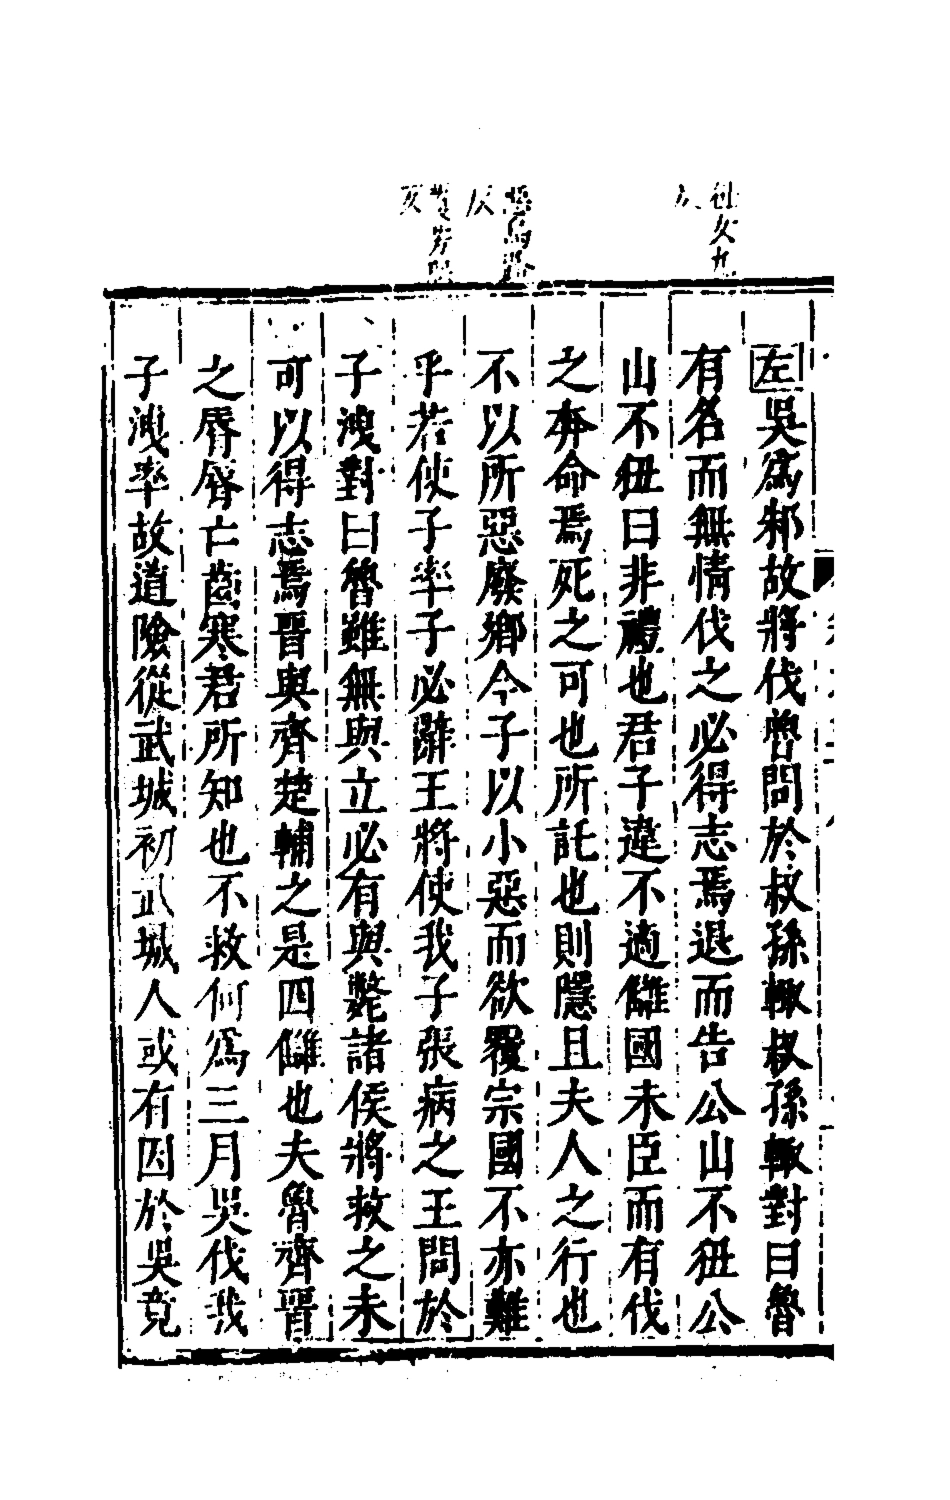 狃女九
左吳爲邾故將伐魯問於叔孫輙叔孫輙對曰魯
有名而無情伐之必得志焉退而告公山不狃公
山不狃曰非禮也君子違不適讎國未臣而有伐
之奔命焉死之可也所託也則隱且夫人之行也
不以所惡廢鄉今子以小惡而欲覆宗國不亦難
乎若使子率子必辭王將使我子張病之王問於
子洩對曰魯雖無與立必有與斃諸侯將救之未
可以得志焉晉與齊楚輔之是四讎也夫魯齊晉
之脣脣亡齒寒君所知也不救何爲三月吳伐我
子洩率故道險從武城初武城人或有因於吳竟